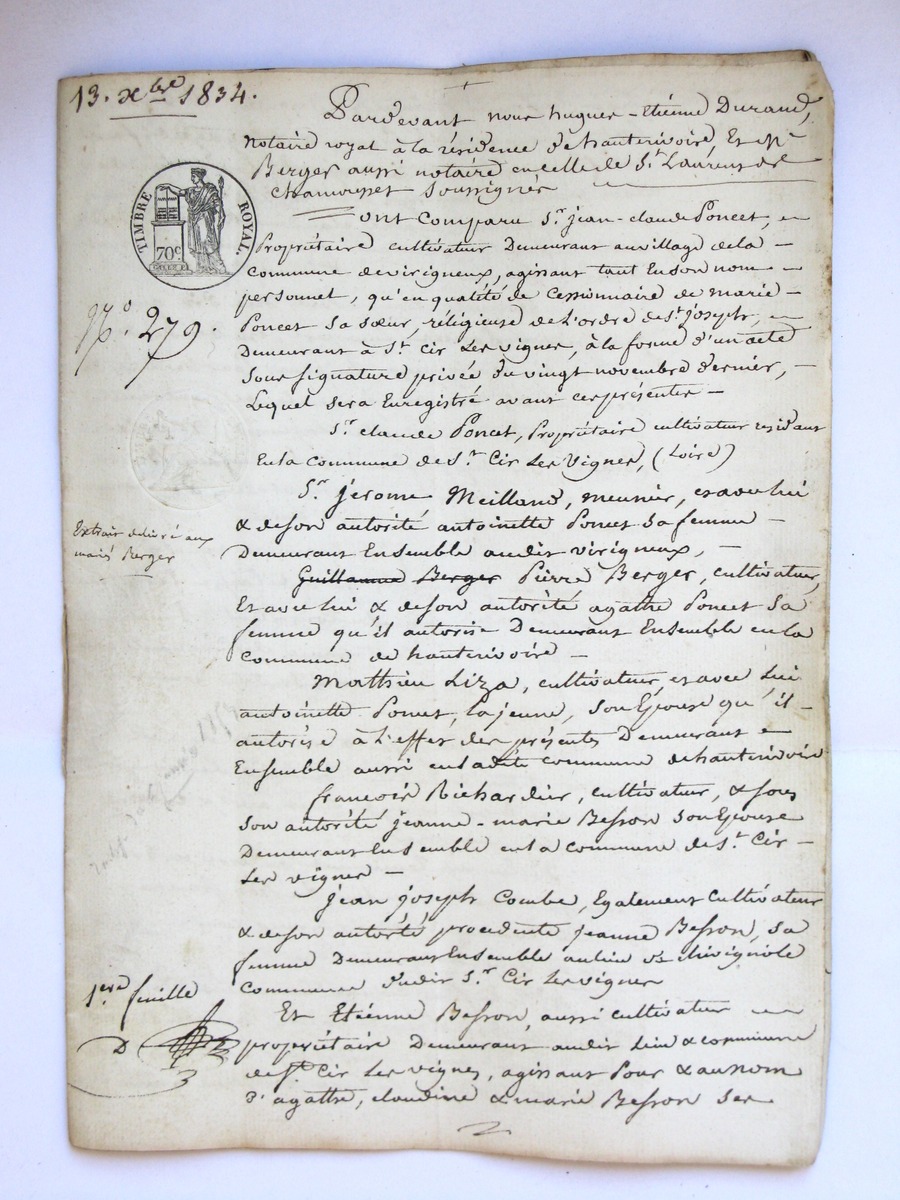 13. xbre 1834.
Pardevant nous hugues-Etiénne Durand,
notaire royal à la résidence de hauterivoire, Et Me
Berger aussi notaire en celle de St Laurent de
Chamousset soussignés
ont Comparu Sr jean-claude Poncet,
Propriétaire cultivateur Demeurant au village de la
Commune de virigneux, agissant tant En son nom
personnel, qu'en qualité de Cessionnaire de marie
Poncet sa sœur, réligieuse de l'ordre de St Joseph,
Demeurant à St Cir Les vignes, à la forme d'un acte
sous signature privée du vingt novembre dernier,
Lequel sera Enregistré avant ces présentes
Sr claude Poncet, Propriétaire cultivateur residant
En la commune de St Cir Les Vignes, (Loire)
Sr jérome Meilland, meunier, et avec lui
& de son autorité antoinette Poncet sa femme
Demeurant Ensemble audit virigneux,
Guillaume Berger Pierre Berger, cultivateur,
Et avec lui & de son autorité agathe Poncet sa
femme qu'il autorise Demeurant Ensemble en la
Commune de hauterivoire
Mathieu Liza, cultivateur, et avec Lui
antoinette Poncet, la jeune, son Epouse qu'il
autorise à L'effet des présentes Demeurant
Ensemble aussi en ladite commune de hauterivoire
françois Richardier, cultivateur, & sous
son autorité jeanne-marie Besson son Epouse
Demeurant Ensemble en la commune de St Cir
Les vignes
jean joseph Combe, Egalement Cultivateur
& de son autorité procedente jeanne Besson, sa
femme Demeurant Ensemble au lieu de
Commune dudit St Cir Les vignes
Et Etiénne Besson, aussi cultivateur
propriétaire Demeurant audit Lieu & commune
de St Cir Les vignes, agissant Pour & au nom
d'agathe, claudine & marie Besson ses
TIMBRE ROYAL.
70c
No. 279.
Extrait délivré aux
mariés Berger
1ere feuille
D